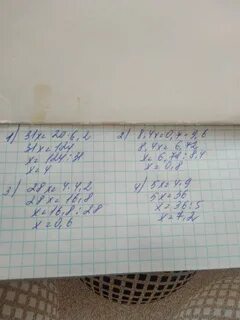 1) 31x=20·6,2
31x=124
x=124:31
x=4
2) 8,4x=0,7·9,6
8,4x=6,72
x=6,72:8,4
x=0,8
3) 28x=4·4,2
28x=16,8
x=16,8:28
x=0,6
4) 5x=4·9
5x=36
x=36:5
x=7,2